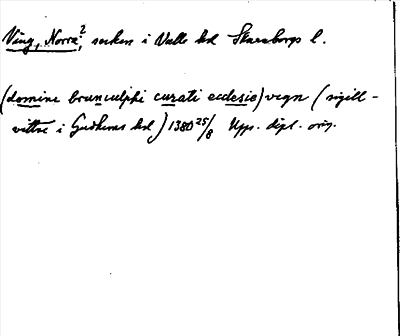 Ving, Norra,? socken i Valle hd Skaraborgs l.
(domine brunwulphi curati ecclesie) vegn (sigill-
vittne i Gudhems hd) 1380 25/8 Upps. dipl. orig.